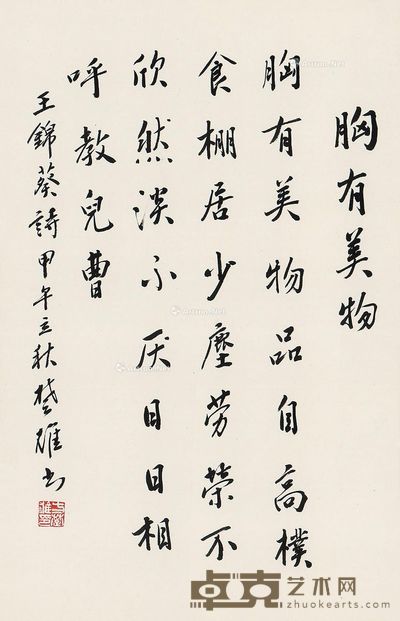 胸有美物
胸有美物品自高樸
食棚居少塵劳荣不
欣然淡不厌日日相
呼教兒曹
王錦蔡詩甲午立秋楚雄书
卓克艺术网
zhuokearts.com